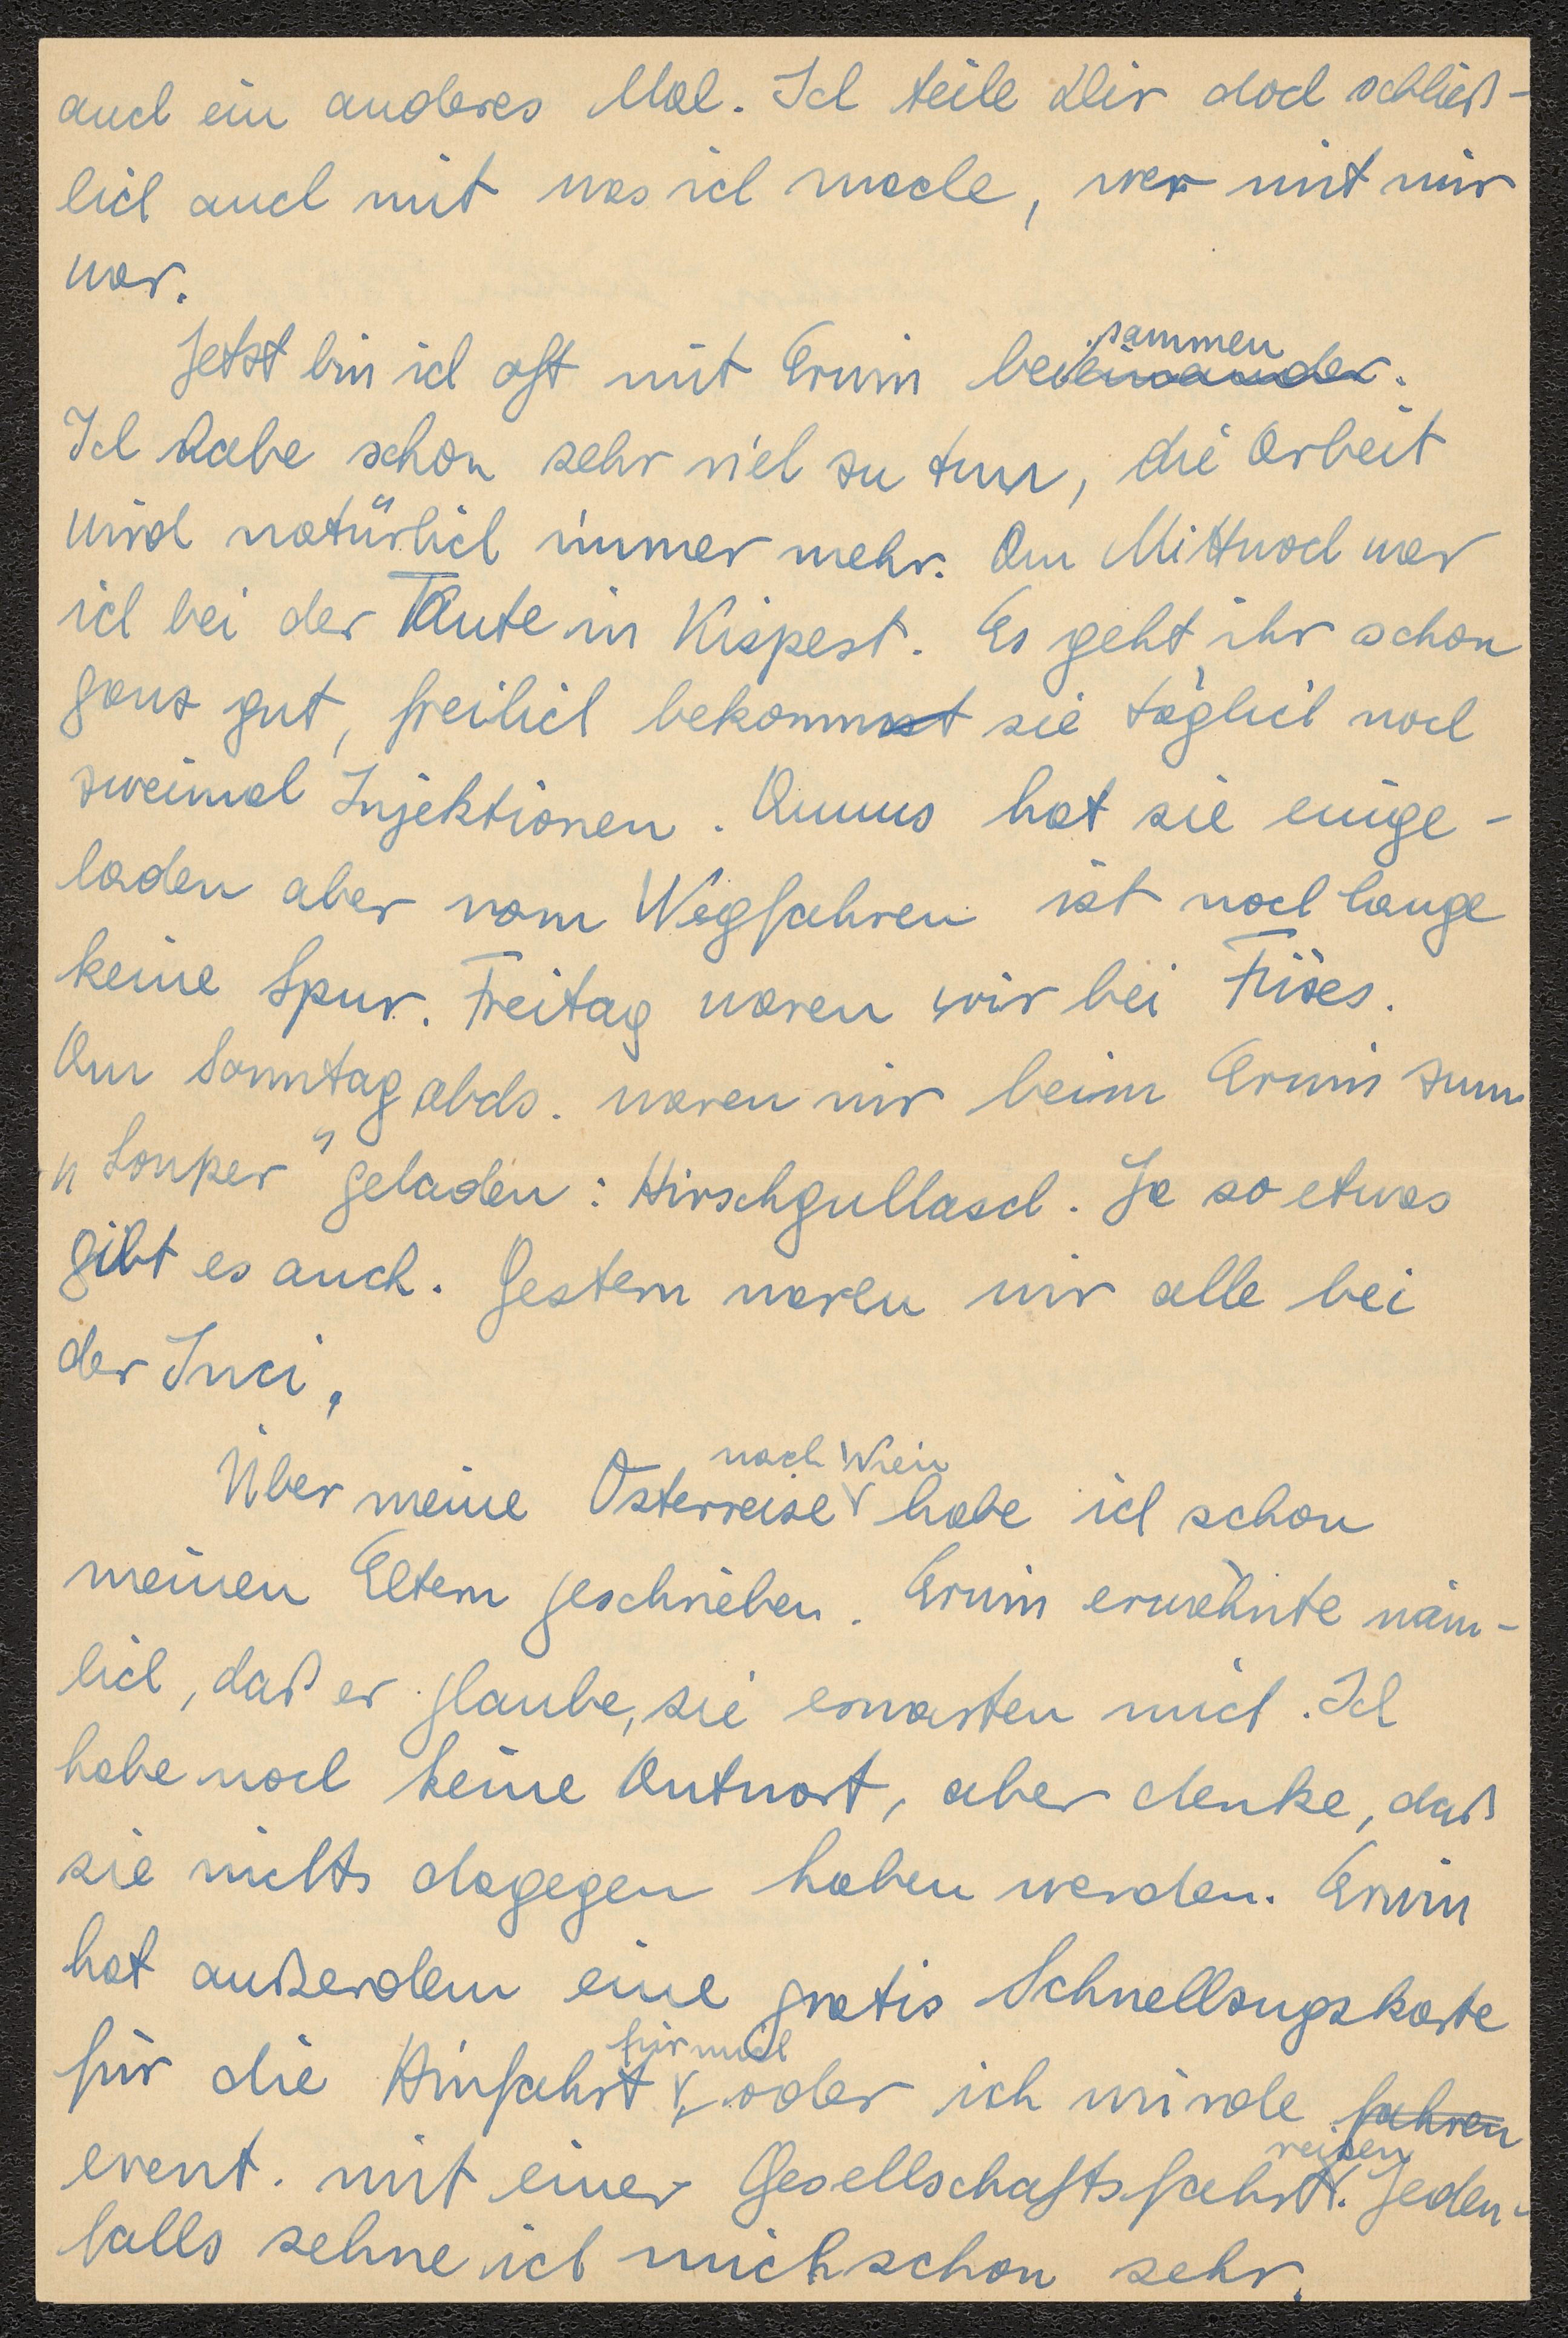 auch ein anderes Mal. Ich teile Dir doch schließ-
lich auch mit was ich mache, wer mit mir
war.
Jetzt bin ich oft mit Erwin beieinander.
sammen
Ich habe schon sehr viel zu tun, die Arbeit
wird natürlich immer mehr. Am Mittwoch war
ich bei der Tante in Kispest. Es geht ihr schon
ganz gut, freilich bekommt sie täglich noch
zweimal Injektionen. hat sie einge-
laden aber vom Wegfahren ist noch lange
keine Spur. Freitag waren wir bei
Am Sonntag abds. waren wir beim Erwin zum
„Souper" geladen: Hirschgullasch. Ja so etwas
gibt es auch. Gestern waren wir alle bei
der Inci.
nach Wien
Über meine Osterreise habe ich schon
meinen Eltern geschrieben. Erwin erwähnte näm-
lich, daß er glaube, sie erwarten mich. Ich
habe noch keine Antwort, aber denke, daß
sie nichts dagegen haben werden. Erwin
hat außerdem eine gratis Schnellzugskarte
für mich
für die Hinfahrt, oder ich würde fahren
reisen
event. mit einer Gesellschaftsfahrt. Jeden-
falls sehne ich mich schon sehr.